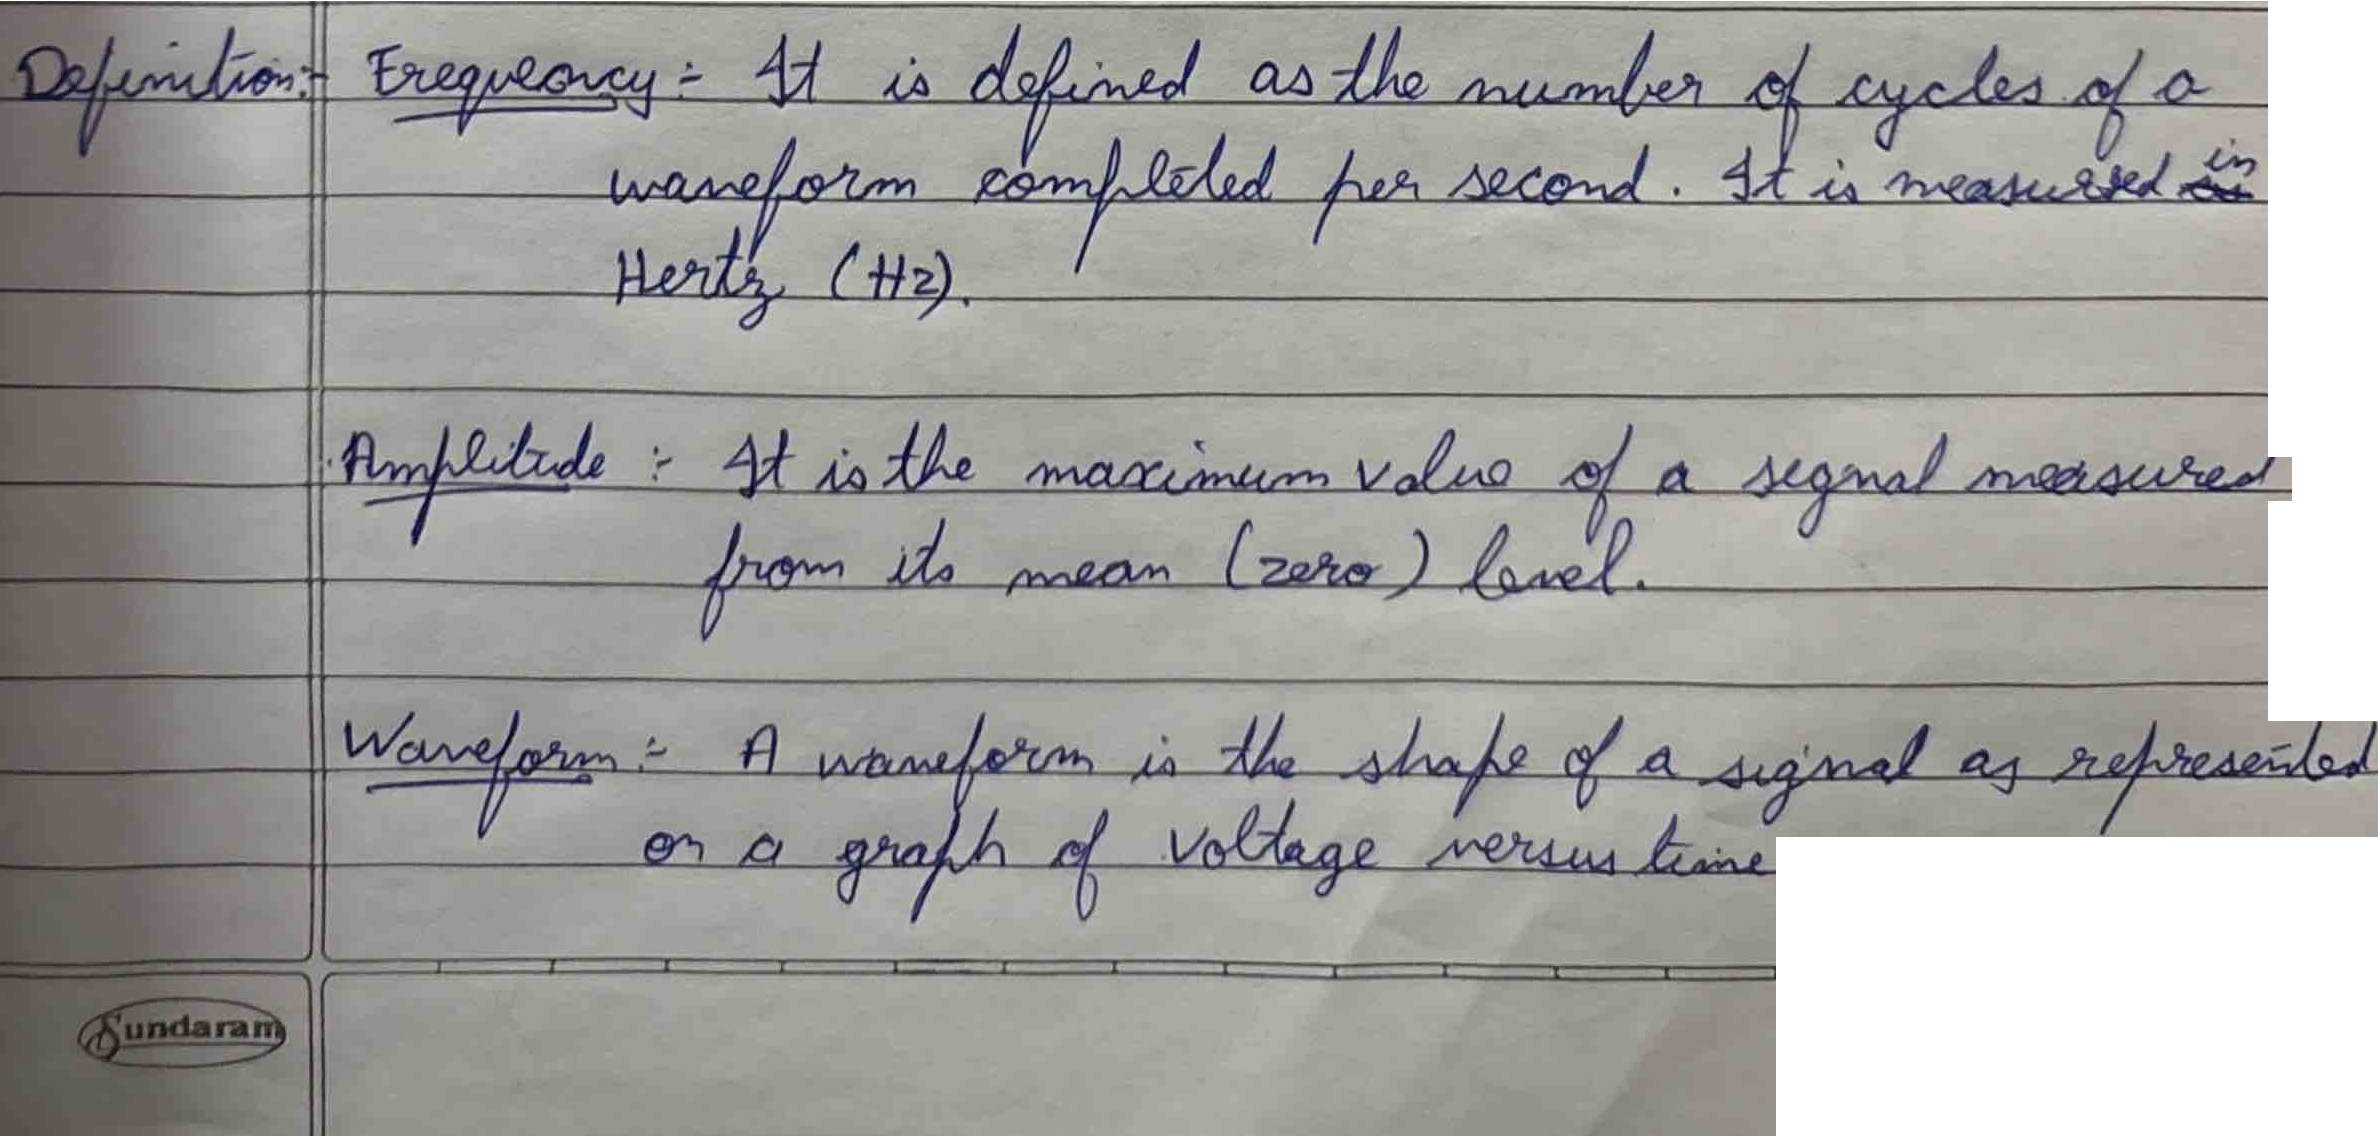 Definition:- Frequency:- It is defined as the number of cycles of a
waveform completed per second. It is measured in
Hertz (Hz).
Amplitude :- It is the maximum value of a signal measured
from its mean (zero) level.
Waveform:- A waveform is the shape of a signal as represented
on a graph of voltage versus time
Sundaram